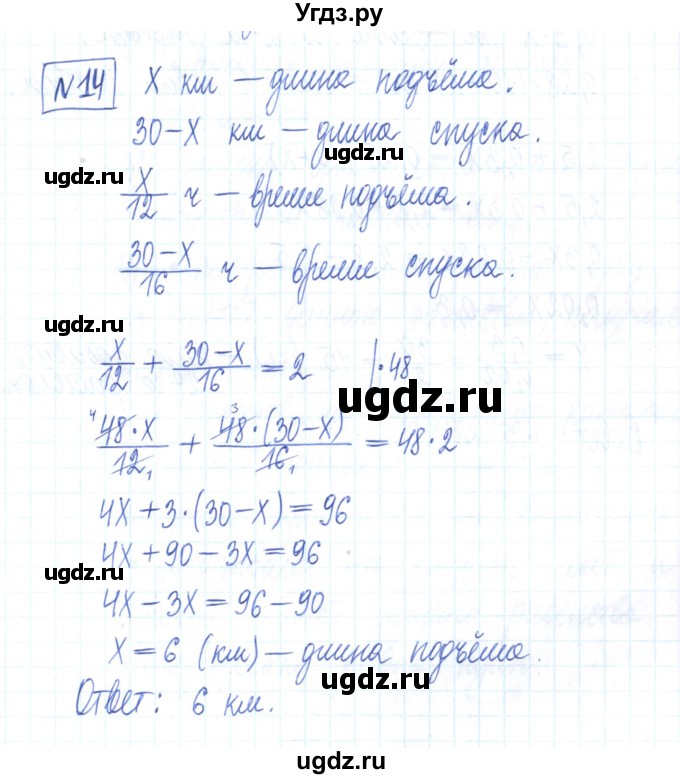 Угдз.ру
№14 x км – длина подъёма.
30−x км – длина спуска.
ugdz.ru ugdz.ru
x/12 ч – время подъёма.
(30−x)/16 ч – время спуска.
ugdz.ru ugdz.ru
x/12 + (30−x)/16 = 2 |·48
ugdz.ru
4 3
48·x/12 1 + 48·(30−x)/16 1 = 48·2
ugdz.ru ugdz.ru
4x+3·(30−x)=96
4x+90−3x=96
ugdz.ru ugdz.ru
4x−3x=96−90
x=6 (км) – длина подъёма.
ugdz.ru
Ответ: 6 км.
ugdz.ru
ugdz.ru